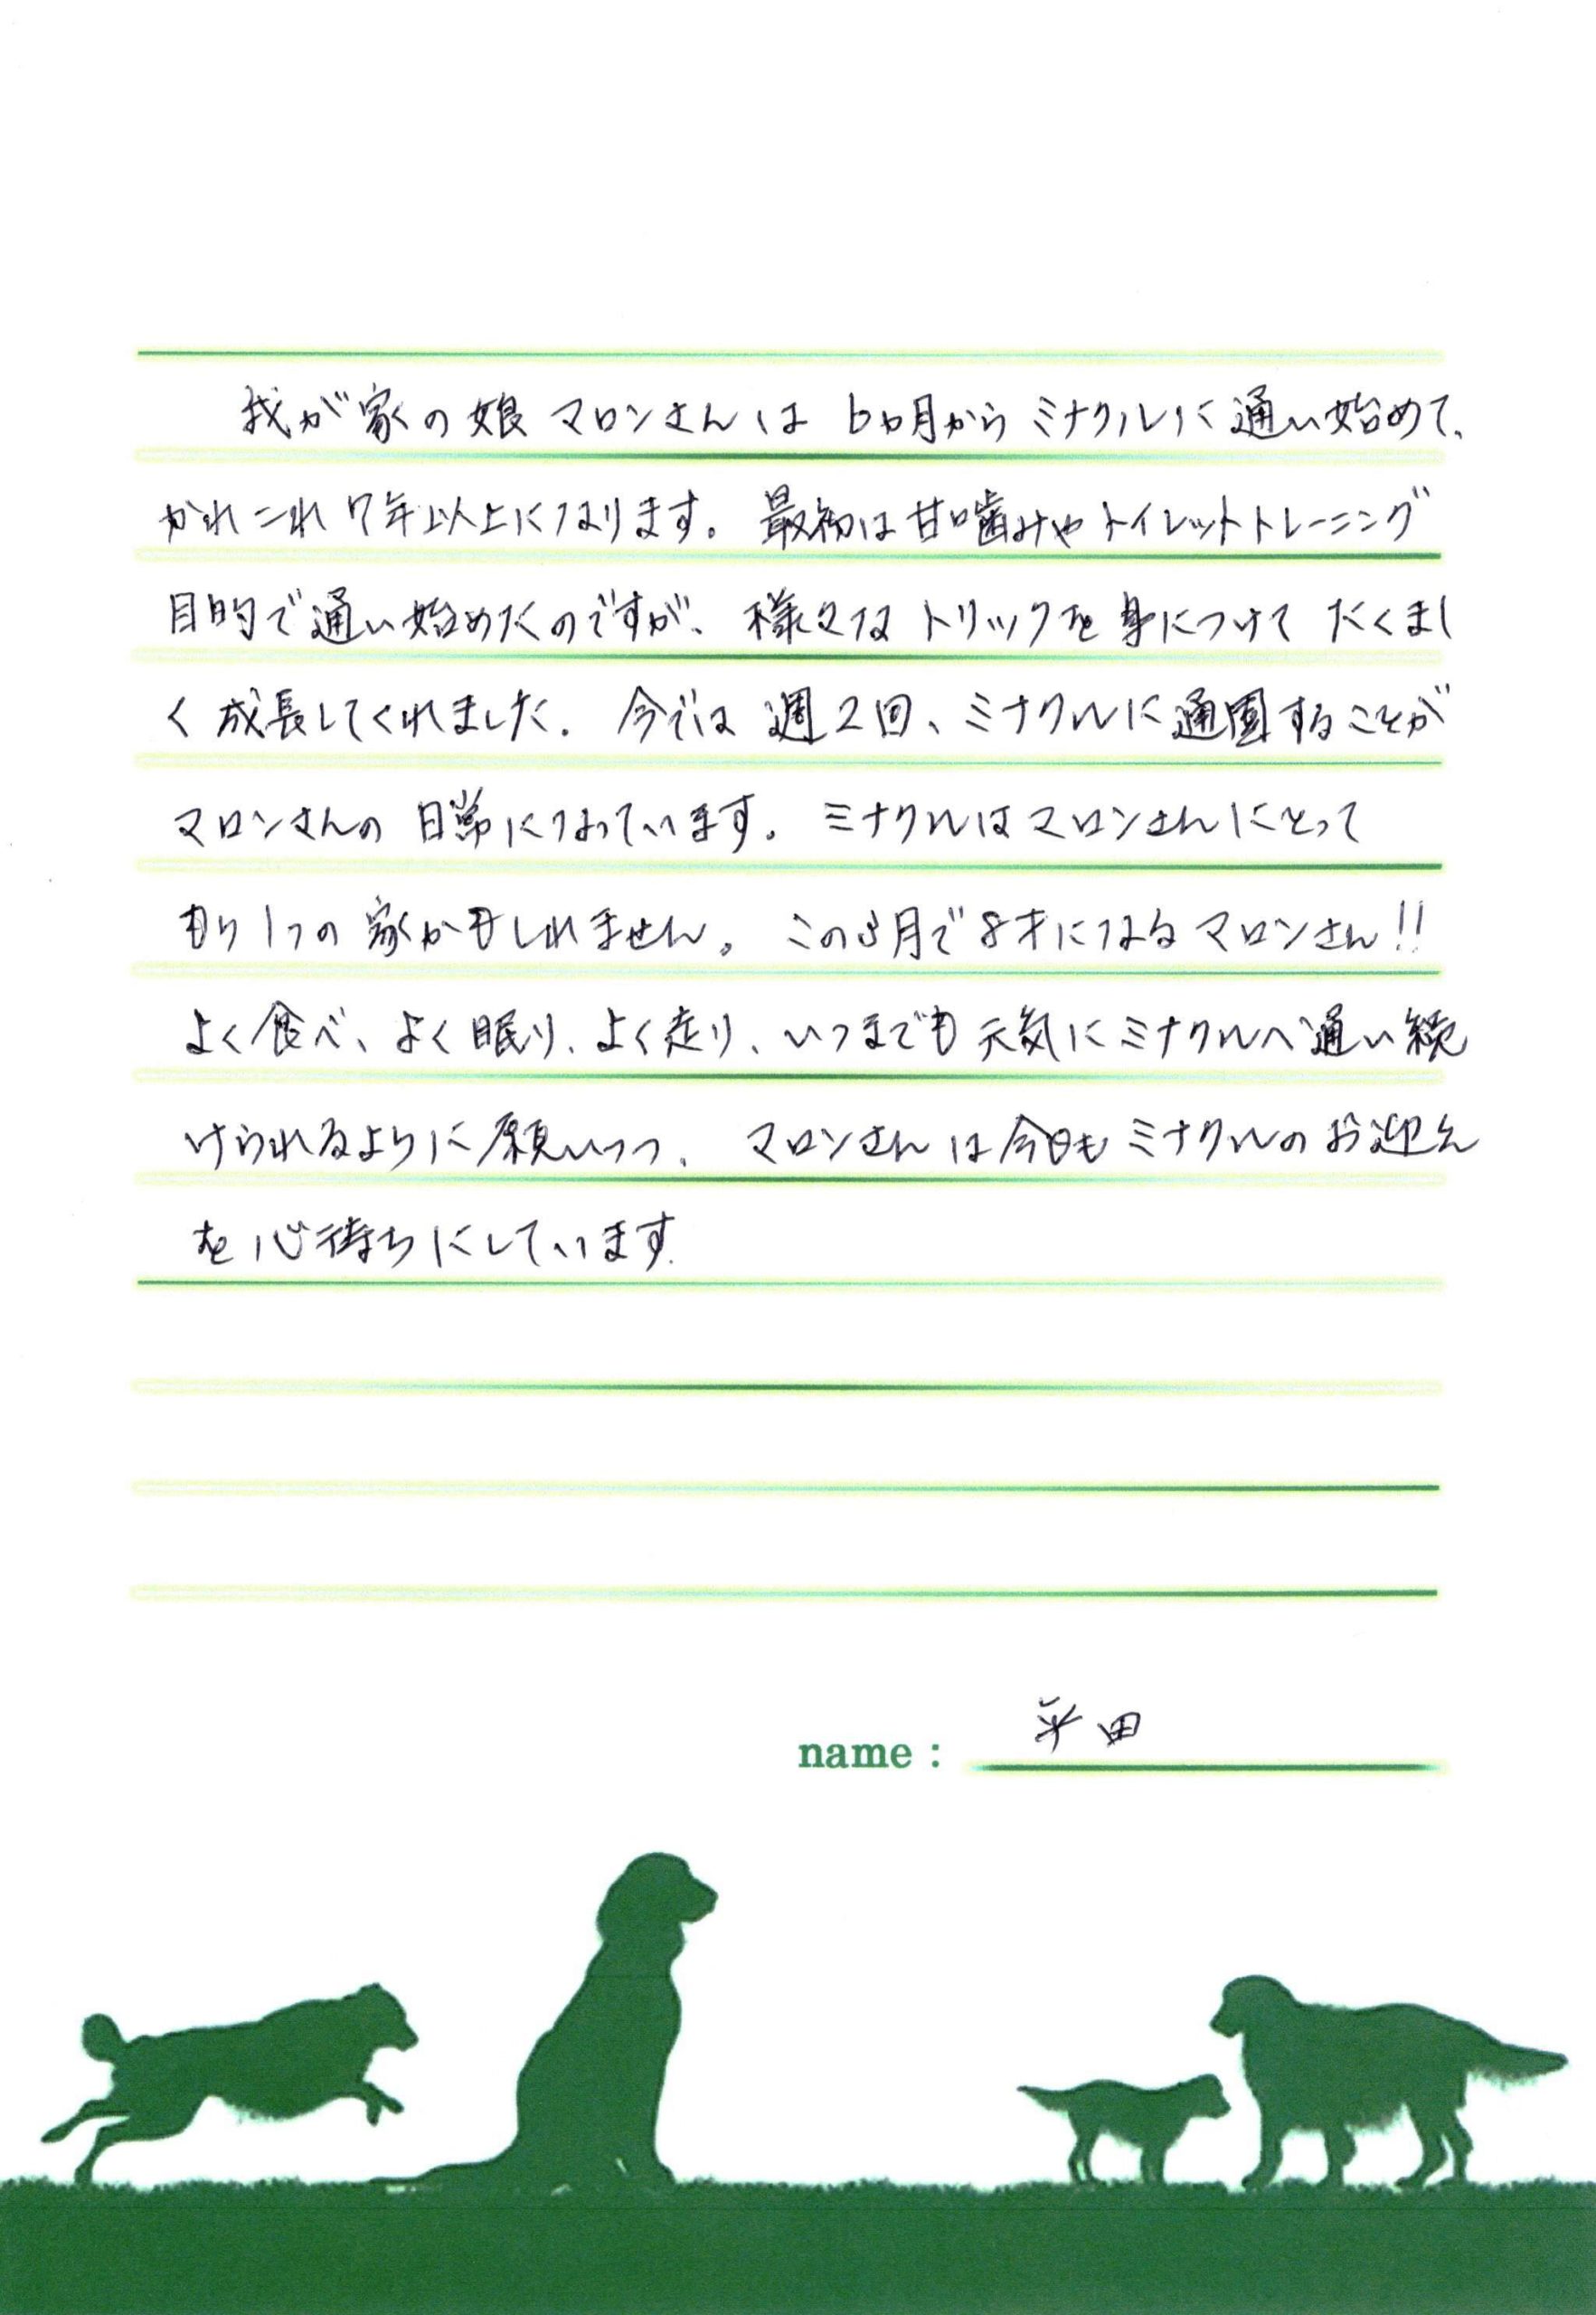 我が家の娘 マロンさんは 6ヵ月から ミナクルに 通い始めて、
かれこれ 7年以上になります。 最初は甘噛みや トイレットトレーニング
目的で通い始めたのですが、 様々な トリックを 身につけて たくまし
く 成長してくれました。 今では 週2回、ミナクルに 通園することが
マロンさんの 日常になっています。 ミナクルはマロンさんにとって
もう1つの 家かもしれません。 この3月で8才になる マロンさん!!
よく食べ、よく眠り、よく走り、いつまでも 元気に ミナクルへ 通い続
けられるように 願いつつ、 マロンさんは今日も ミナクルの お迎え
を心待ちにしています.
name : 平田